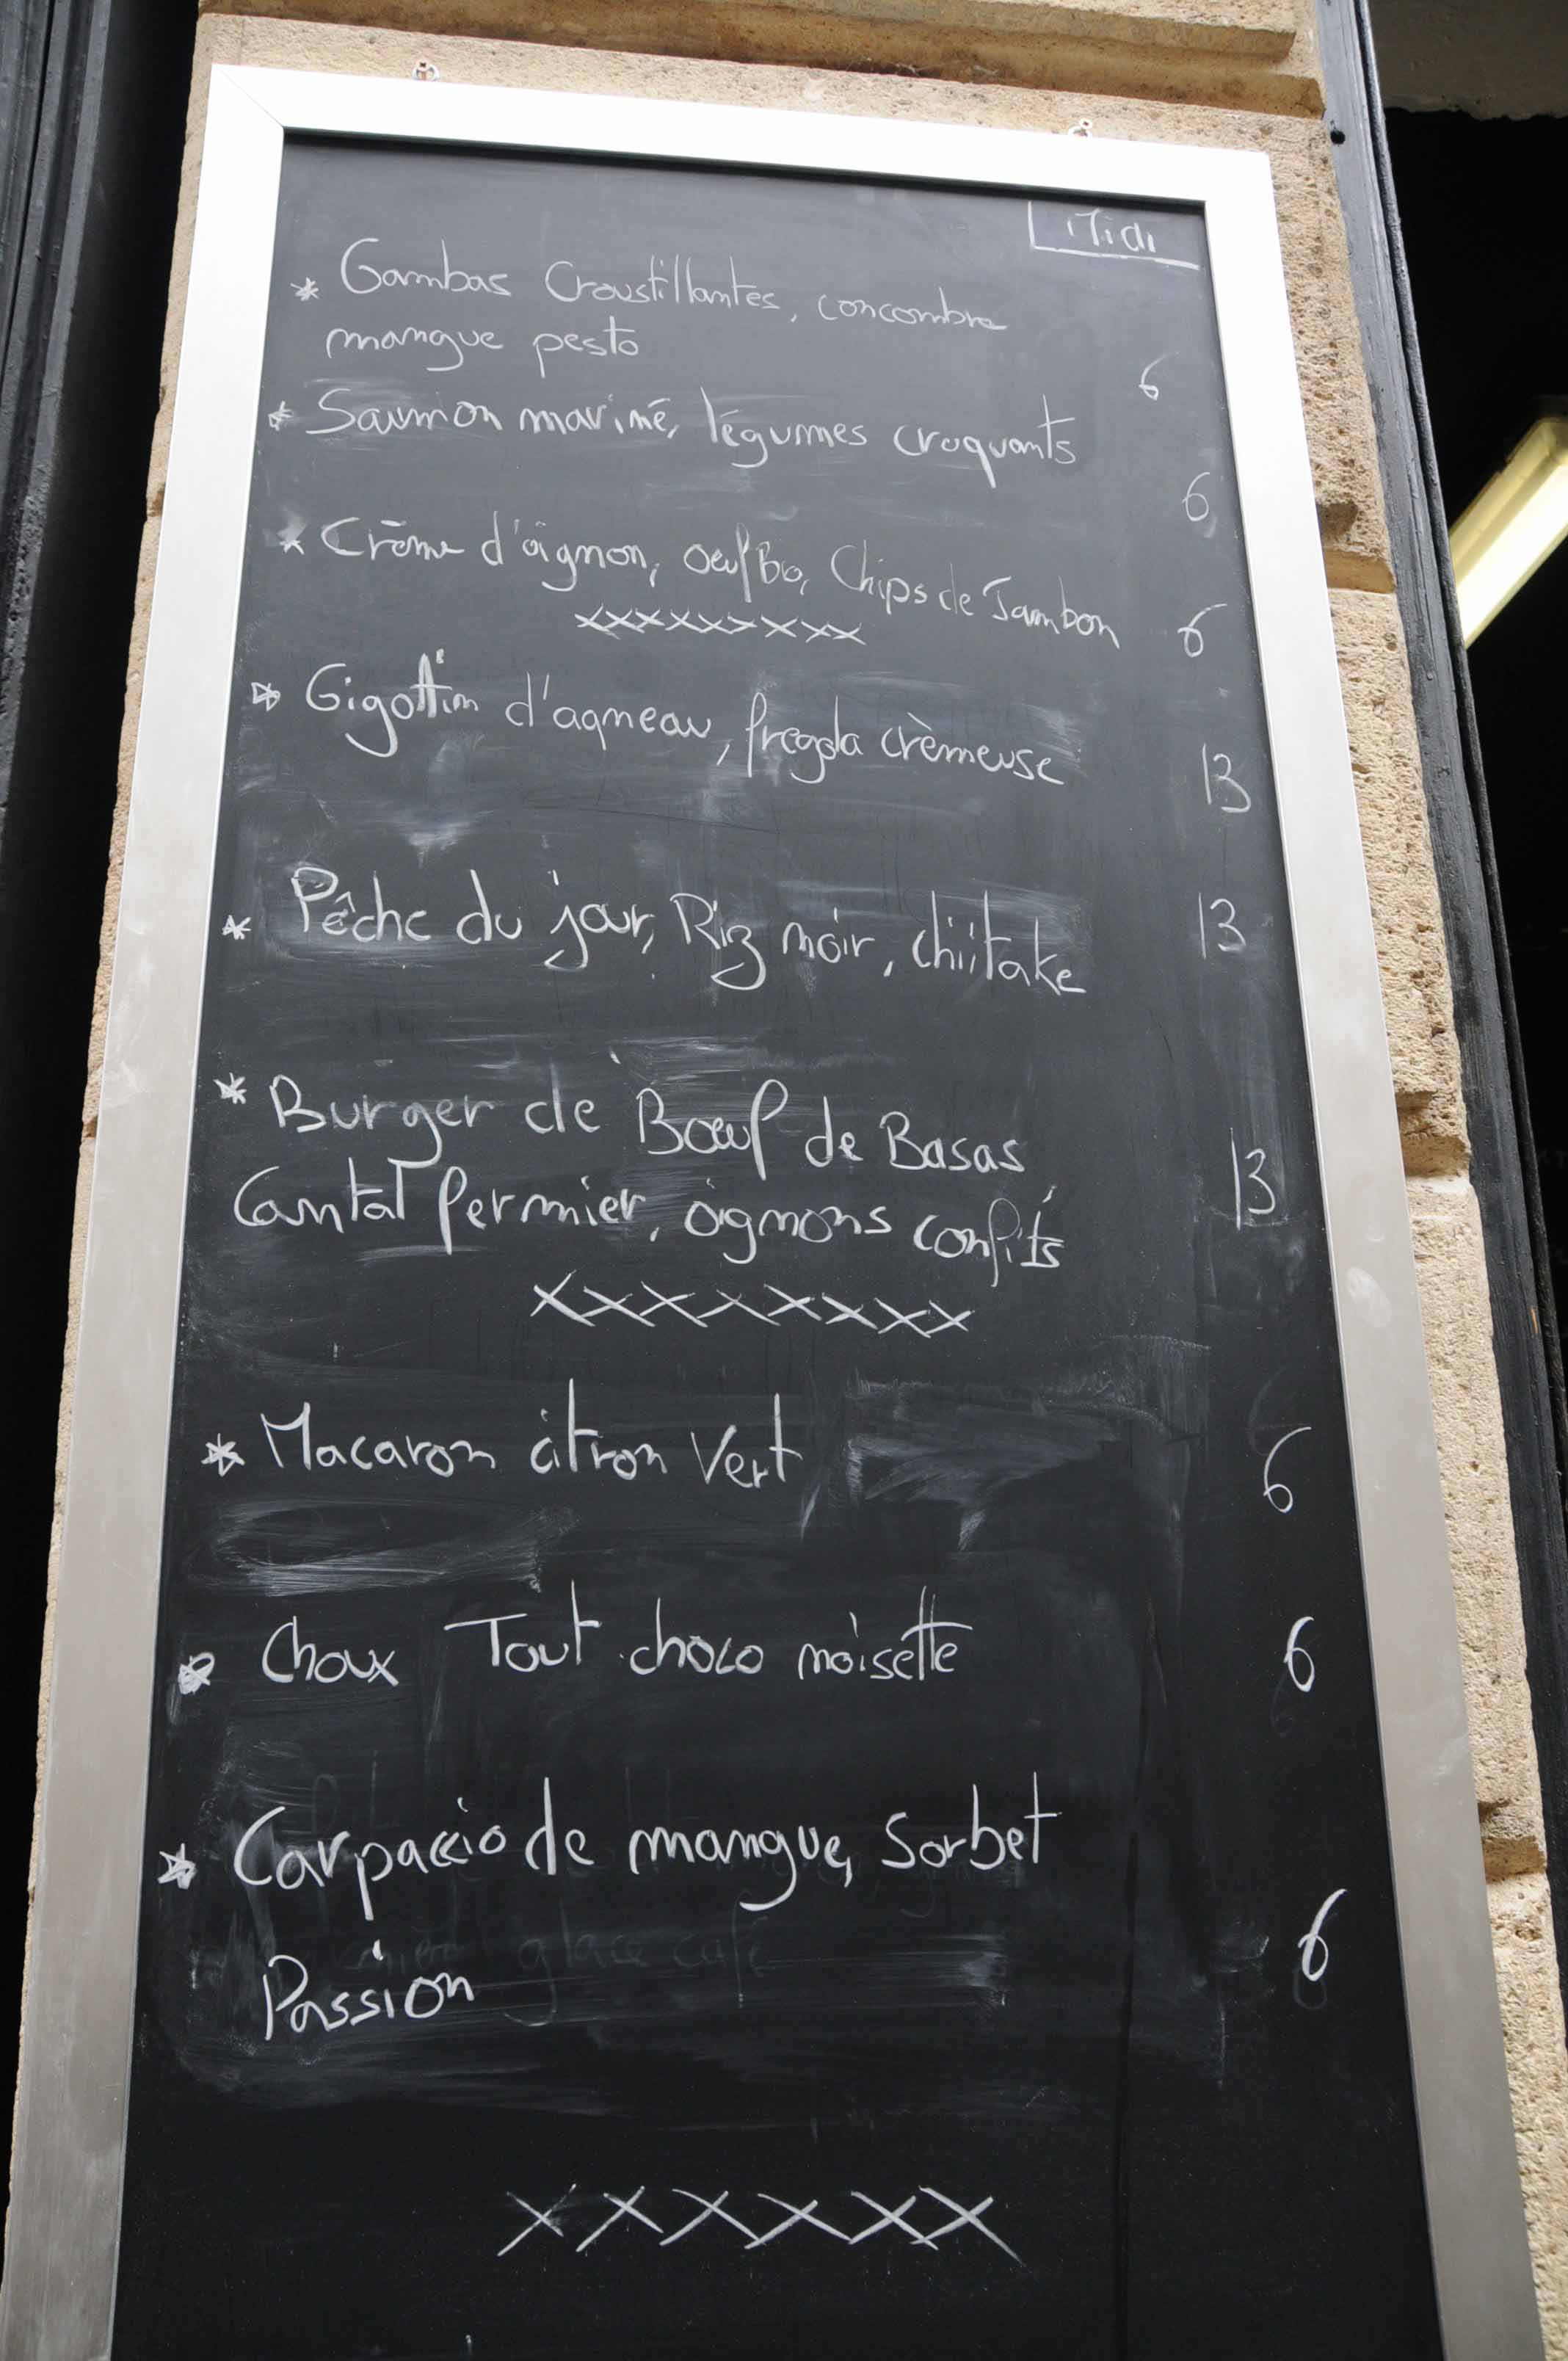 Midi
* Gambas Croustillantes, concombre
mangue pesto
6
* Saumon mariné, légumes croquants
6
* Crème d'oignon, oeuf Bio, Chips de Jambon 6
xxxxxxxxx
* Gigottin d'agneau, fregola crèmeuse 13
* Pêche du jour, Riz noir, chiitake 13
* Burger de Bœuf de Basas
Cantal fermier, oignons confits 13
xxxxxxxx
* Macaron citron Vert 6
* Choux Tout choco noisette 6
* Carpaccio de mangue, Sorbet
Passion 6
xxxxxx